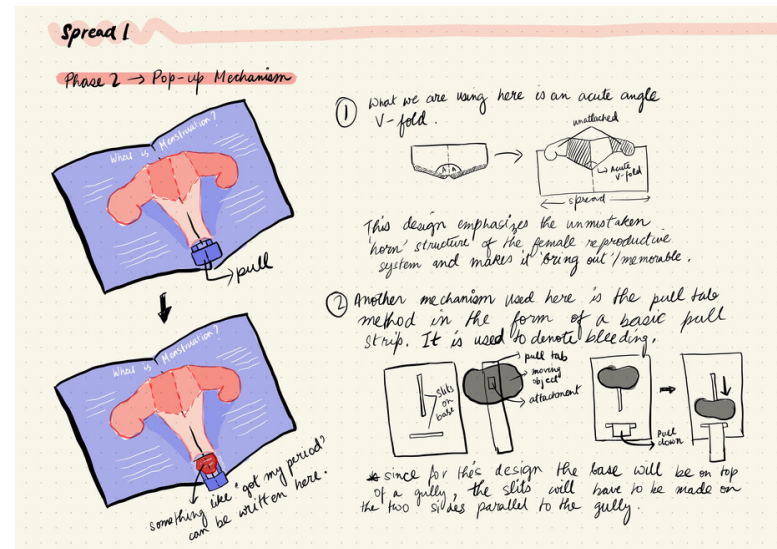 Spread 1
Phase 2 → Pop-up Mechanism
What is Menstruation?
→ pull
What is Menstruation?
something like 'got my period'
can be written here.
① What we are using here is an acute angle
V-fold.
unattached
A A
Acute
V-fold
spread
This design emphasizes the unmistaken
'horn' structure of the female reproductive
system and makes it 'bring out'/memorable.
② Another mechanism used here is the pull tab
method in the form of a basic pull
strip. It is used to denote bleeding.
slits
on
base
pull tab
moving
object
attachment
Pull
down
* since for this design the base will be on top
of a gully, the slits will have to be made on
the two sides parallel to the gully.